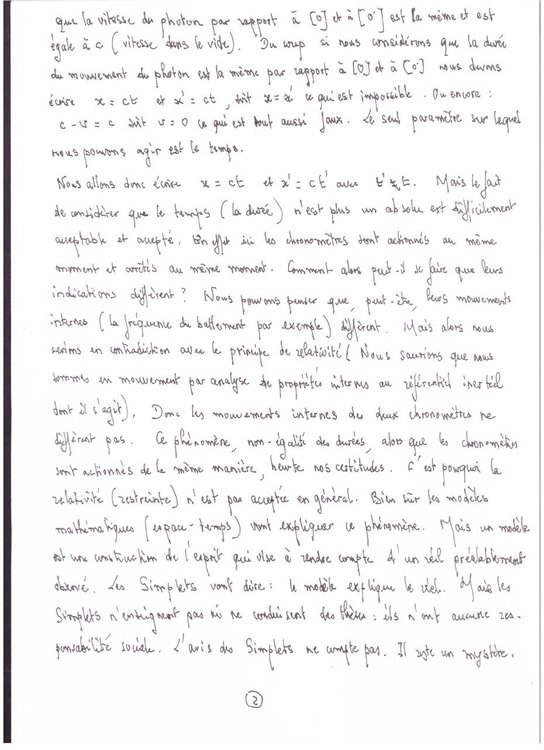 que la vitesse du photon par rapport à [0] et à [0'] est la même et est
égale à c (vitesse dans le vide). Du coup si nous considérons que la durée
du mouvement du photon est la même par rapport à [0] et à [0'] nous devons
écrire x = ct et x' = ct, soit x = x' ce qui est impossible. Ou encore :
c - v = c soit v = 0 ce qui est tout aussi faux. Le seul paramètre sur lequel
nous pouvons agir est le temps.
Nous allons donc écrire x = ct et x' = ct' avec t' ≠ t. Mais le fait
de considérer que le temps (la durée) n'est plus un absolu est difficilement
acceptable et accepté. En effet ici les chronomètres sont actionnés au même
moment et arrêtés au même moment. Comment alors peut-il se faire que leurs
indications diffèrent ? Nous pouvons penser que, peut-être, leurs mouvements
internes (la fréquence du battement par exemple) diffèrent. Mais alors nous
serions en contradiction avec le principe de relativité (Nous saurions que nous
sommes en mouvement par analyse de propriétés internes au référentiel inertiel
dont il s'agit). Donc les mouvements internes des deux chronomètres ne
diffèrent pas. Ce phénomène, non-égalité des durées, alors que les chronomètres
sont actionnés de la même manière, heurte nos certitudes. C'est pourquoi la
relativité (restreinte) n'est pas acceptée en général. Bien sûr les modèles
mathématiques (espace-temps) vont expliquer ce phénomène. Mais un modèle
est une construction de l'esprit qui vise à rendre compte d'un réel préalablement
observé. Les Simplets vont dire : le modèle explique le réel. Mais les
Simplets n'enseignent pas ni ne conduisent des thèses : ils n'ont aucune res-
ponsabilité sociale. L'avis des Simplets ne compte pas. Il reste un mystère.
2